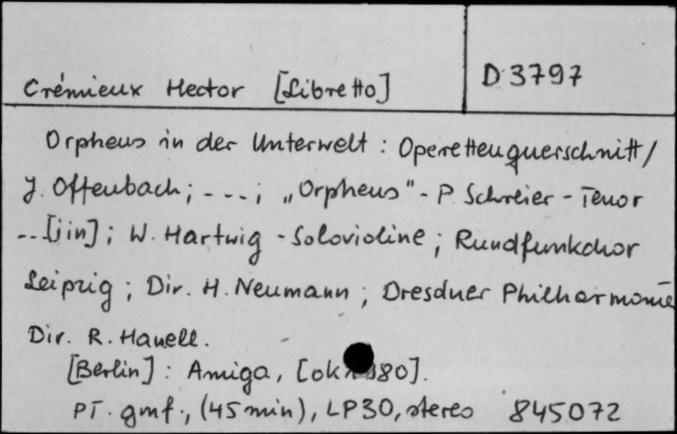 Crémieux Hector [Libretto]
D 3797
Orpheus in der Unterwelt : Operettenquerschnitt /
J. Offenbach ; - - - ; „Orpheus" - P. Schreier - Tenor
- - [iin] ; W. Hartwig - Solovioline ; Rundfunkchor
Leipzig ; Dir. H. Neumann ; Dresdner Philharmonie
Dir. R. Hanell.
[Berlin] : Amiga, [ok. 1980].
PT. gmf., (45 min), LP30, stereo 845072